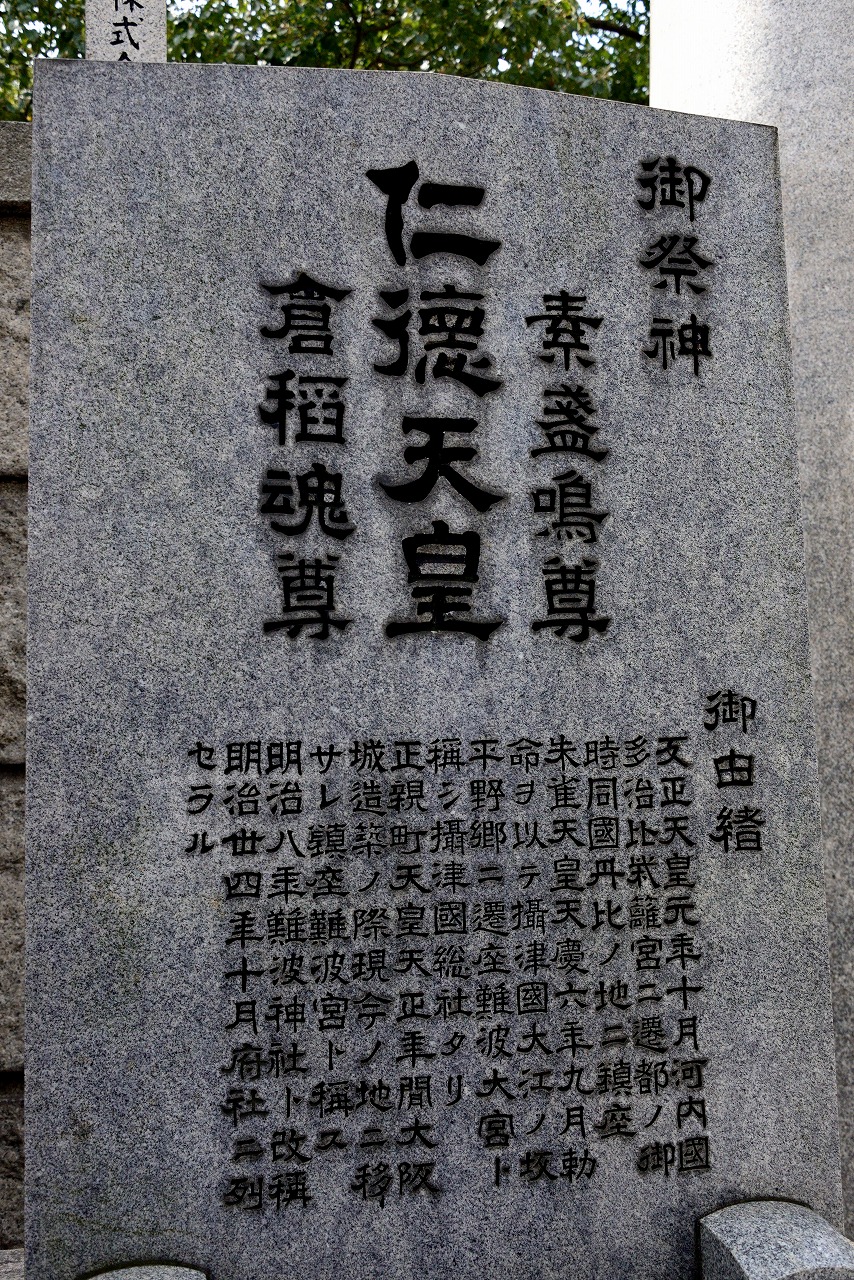 御祭神
素盞嗚尊
仁徳天皇
倉稻魂尊
御由緒
反正天皇元年十月河内國
多治比柴籬宮ニ遷都ノ御
時同國丹比ノ地ニ鎮座
朱雀天皇天慶六年九月勅
命ヲ以テ攝津國大江ノ坂
平野郷ニ遷座難波大宮ト
稱シ攝津國総社タリ
正親町天皇天正年間大阪
城造築ノ際現今ノ地ニ移
サレ鎮座難波宮ト稱ス
明治八年難波神社ト改稱
明治廿四年十月府社ニ列
セラル
株式会